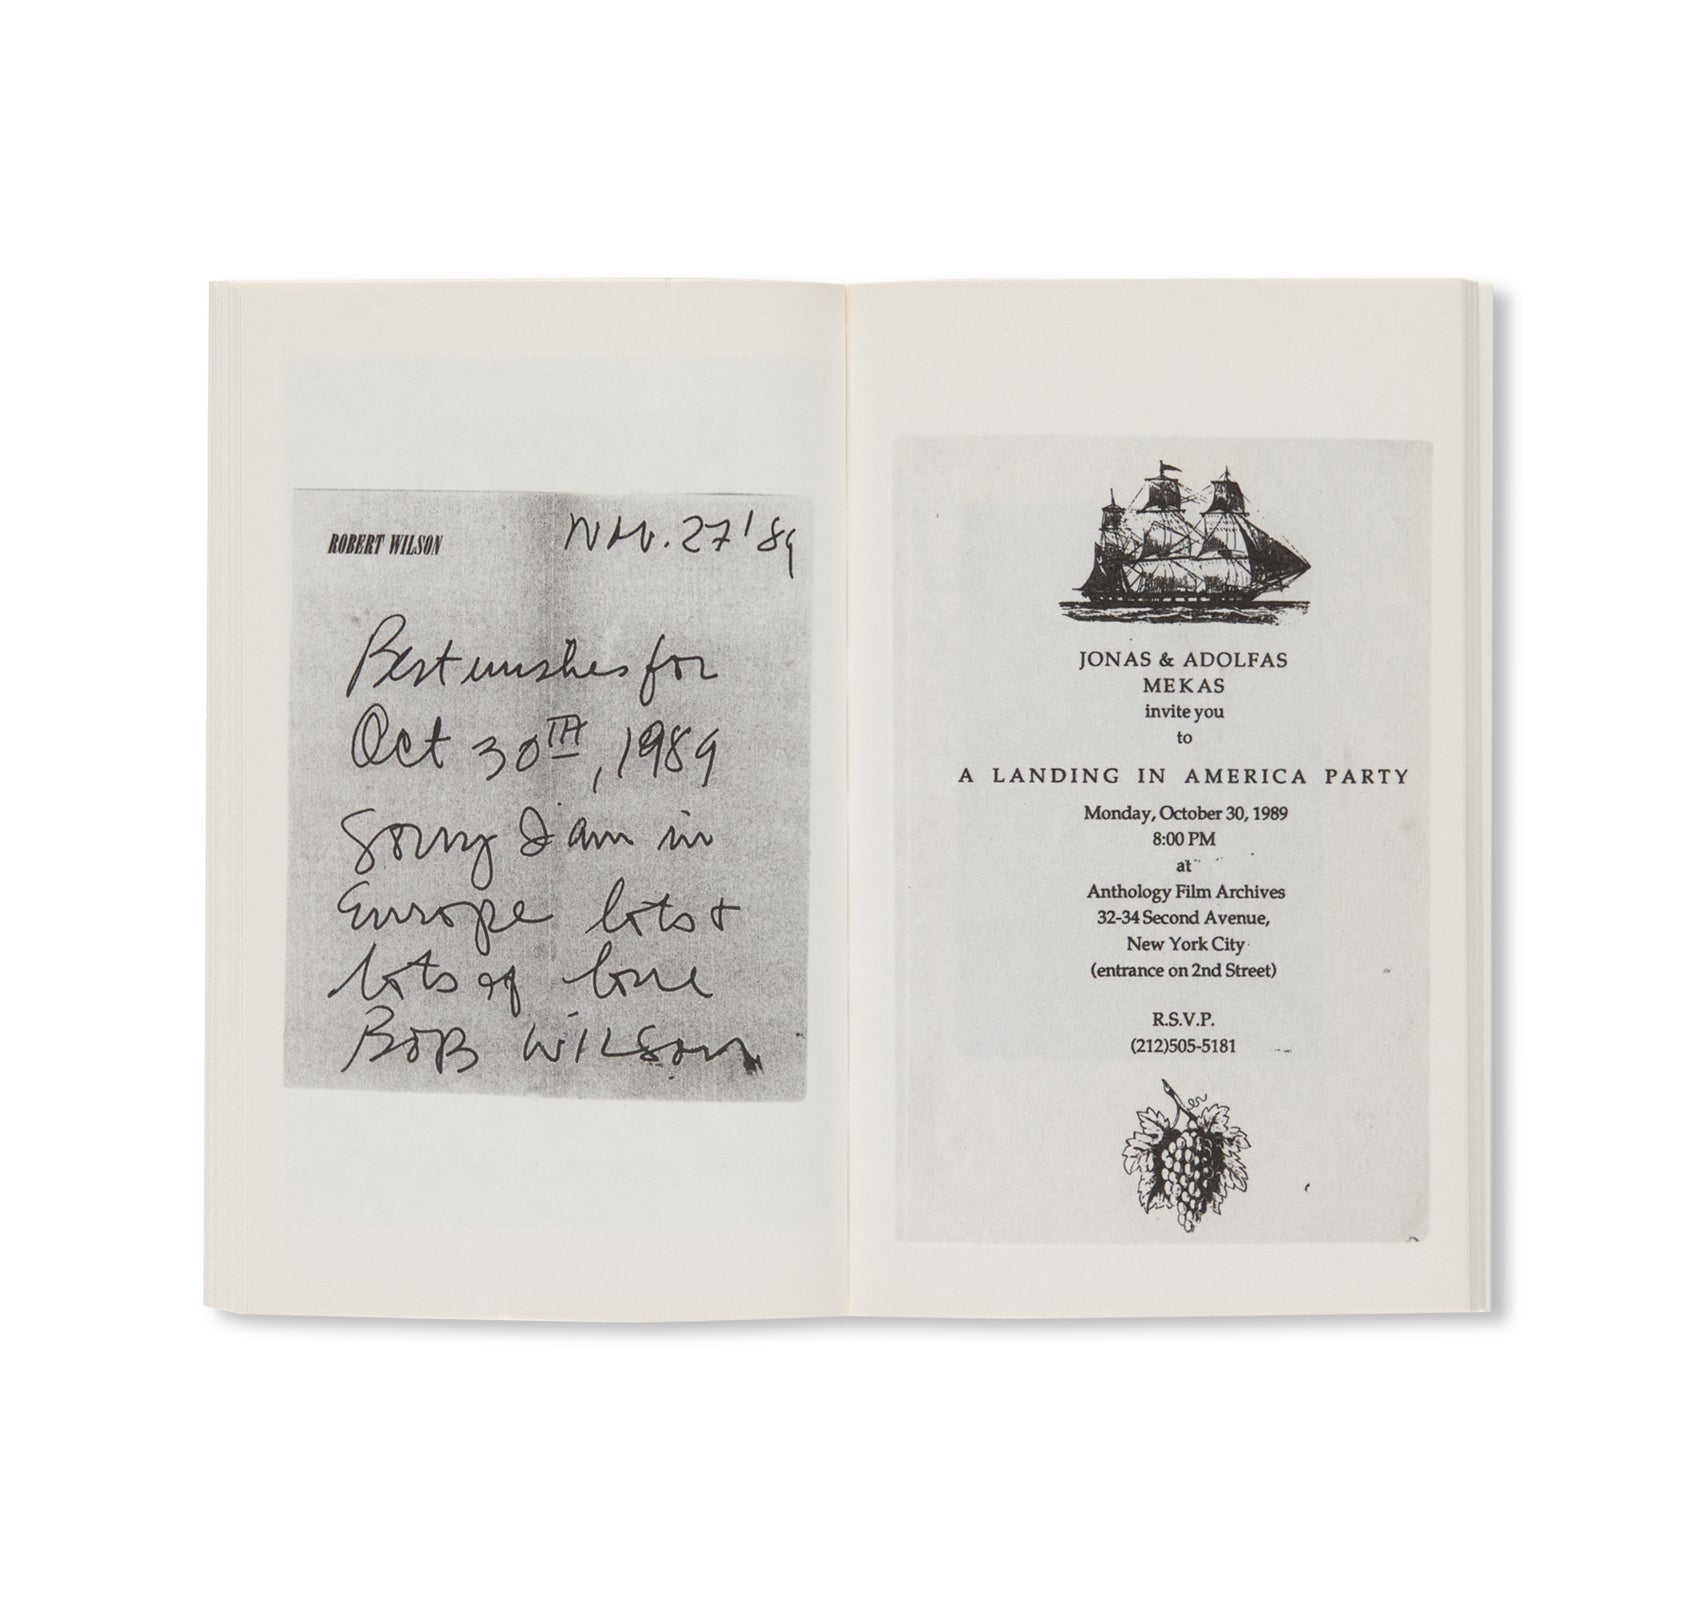 ROBERT WILSON
Nov. 27 '89
Best wishes for
Oct 30TH, 1989
Sorry I am in
Europe lots +
lots of love
BOB WILSON
JONAS & ADOLFAS
MEKAS
invite you
to
A LANDING IN AMERICA PARTY
Monday, October 30, 1989
8:00 PM
at
Anthology Film Archives
32-34 Second Avenue,
New York City
(entrance on 2nd Street)
R.S.V.P.
(212)505-5181